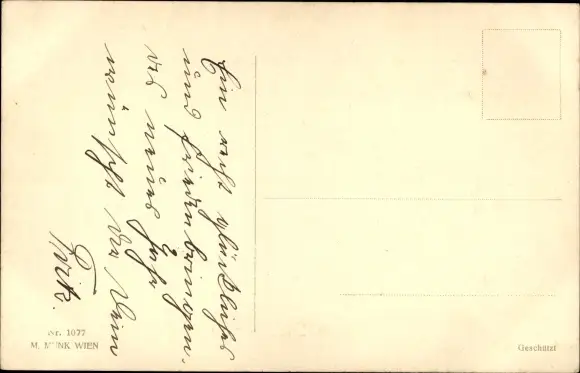 Ein recht glückliches
und friedenbringen-
des neues Jahr
wünscht Dir Dein
Fritz.
Nr. 1077
M. MUNK WIEN
Geschützt